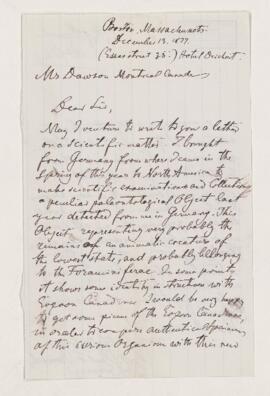 Boston, Massachusetts
December 13. 1877.
(Essex street 35.) Hotel
Mr Dawson Montreal Canada
Dear Sir,
May I venture to write to you a letter
on a scientific matter. I brought
from Germany from where I came in the
spring of this year to North America to
make scientific examinations and collections
a peculiar palaeontological Object last
year detected from me in Germany. This
Object, representing very probably the
remains of an animatic creature of
the lowest state, and probably belonging
to the Foraminiferae. In some points
it shows some identity in structure with
Eozoon Canadense. I would be very happy
to get some pieces of the Eozoon Canadense,
in order to compare authentical specimens
of this curious Organism with the new